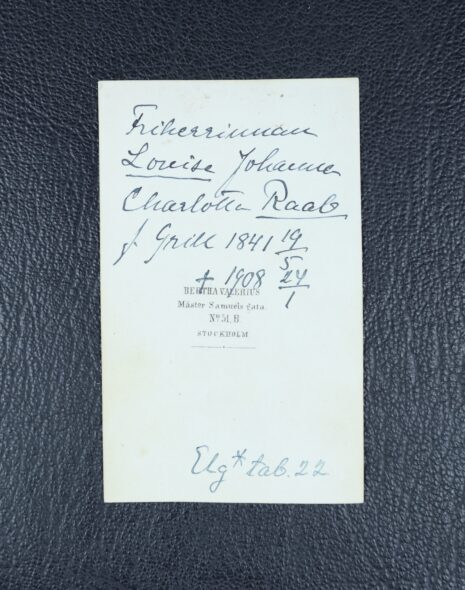 Friherrinnan
Louise Johanna
Charlotta Raab
f. Grill 1841 19/5
† 1908 24/1
BERTHA VALERIUS
Mäster Samuels gata.
No 51, B.
STOCKHOLM
Elg* tab. 22